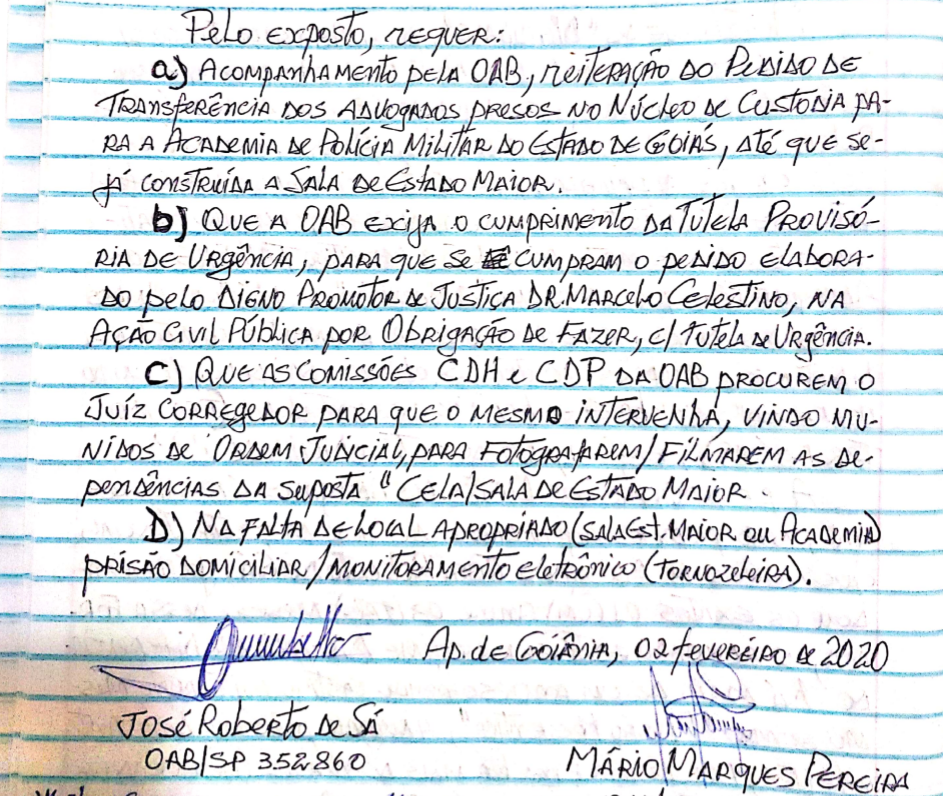 Pelo exposto, requer:
a) Acompanhamento pela OAB, reiteração do Pedido de
Transferência dos Advogados presos no Núcleo de Custódia pa-
ra a Academia de Polícia Militar do Estado de Goiás, até que se-
já construída a Sala de Estado Maior.
b) Que a OAB exija o cumprimento da Tutela Provisó-
ria de Urgência, para que se cumpram o pedido elabora-
do pelo Digno Promotor de Justiça DR. Marcelo Celestino, na
Ação Civil Pública por Obrigação de Fazer, c/ tutela de Urgência.
C) Que as Comissões CDH e CDP da OAB procurem o
Juíz Corregedor para que o mesmo intervenha, vindo mu-
nidos de Ordem Judicial, para Fotografarem/Filmarem as de-
pendências da suposta " Cela/Sala de Estado Maior.
D) Na falta de local apropriado (Sala Est. Maior ou Academia)
prisão domiciliar/monitoramento eletrônico (tornozeleira).
Ap. de Goiânia, 02 fevereiro de 2020
José Roberto de Sá
OAB/SP 352860
Mário Marques Pereira